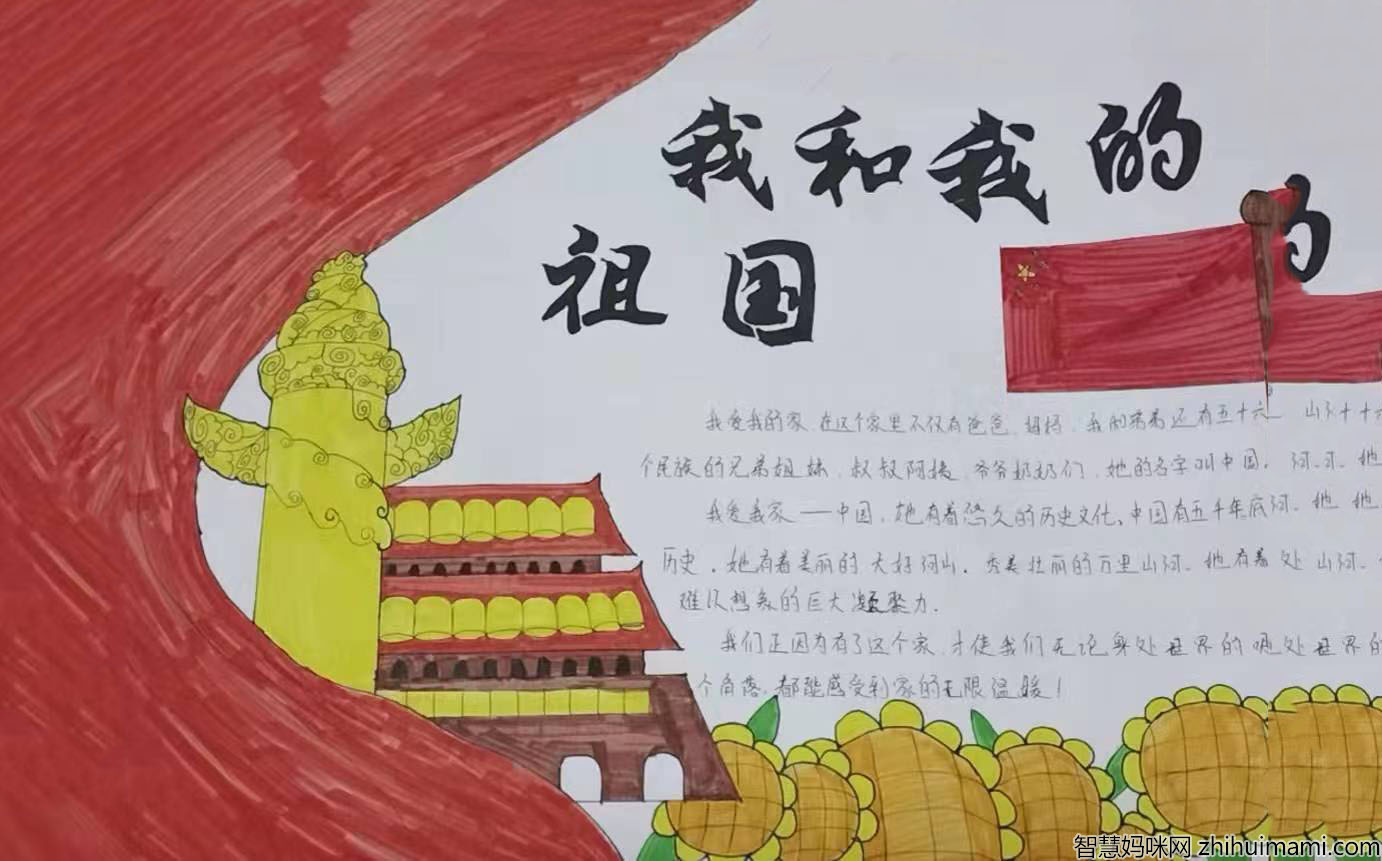 我和我的
祖国 的
我爱我的家,在这个家里不仅有爸爸、妈妈,我的 还有五十六 山河
个民族的兄弟姐妹、叔叔阿姨、爷爷奶奶们,她的名字叫中国。河 她
我爱我家——中国,她有着悠久的历史文化、中国有五千年 河。她 她
历史。她有着美丽的大好河山。秀美壮丽的万里山河。她有着处 山河。
难以想象的巨大凝聚力.
我们正因为有了这个家,才使我们无论身处世界的 处世界的
个角落,都能感受到家的无限温暖!
智慧妈咪网 zhihuimami.com